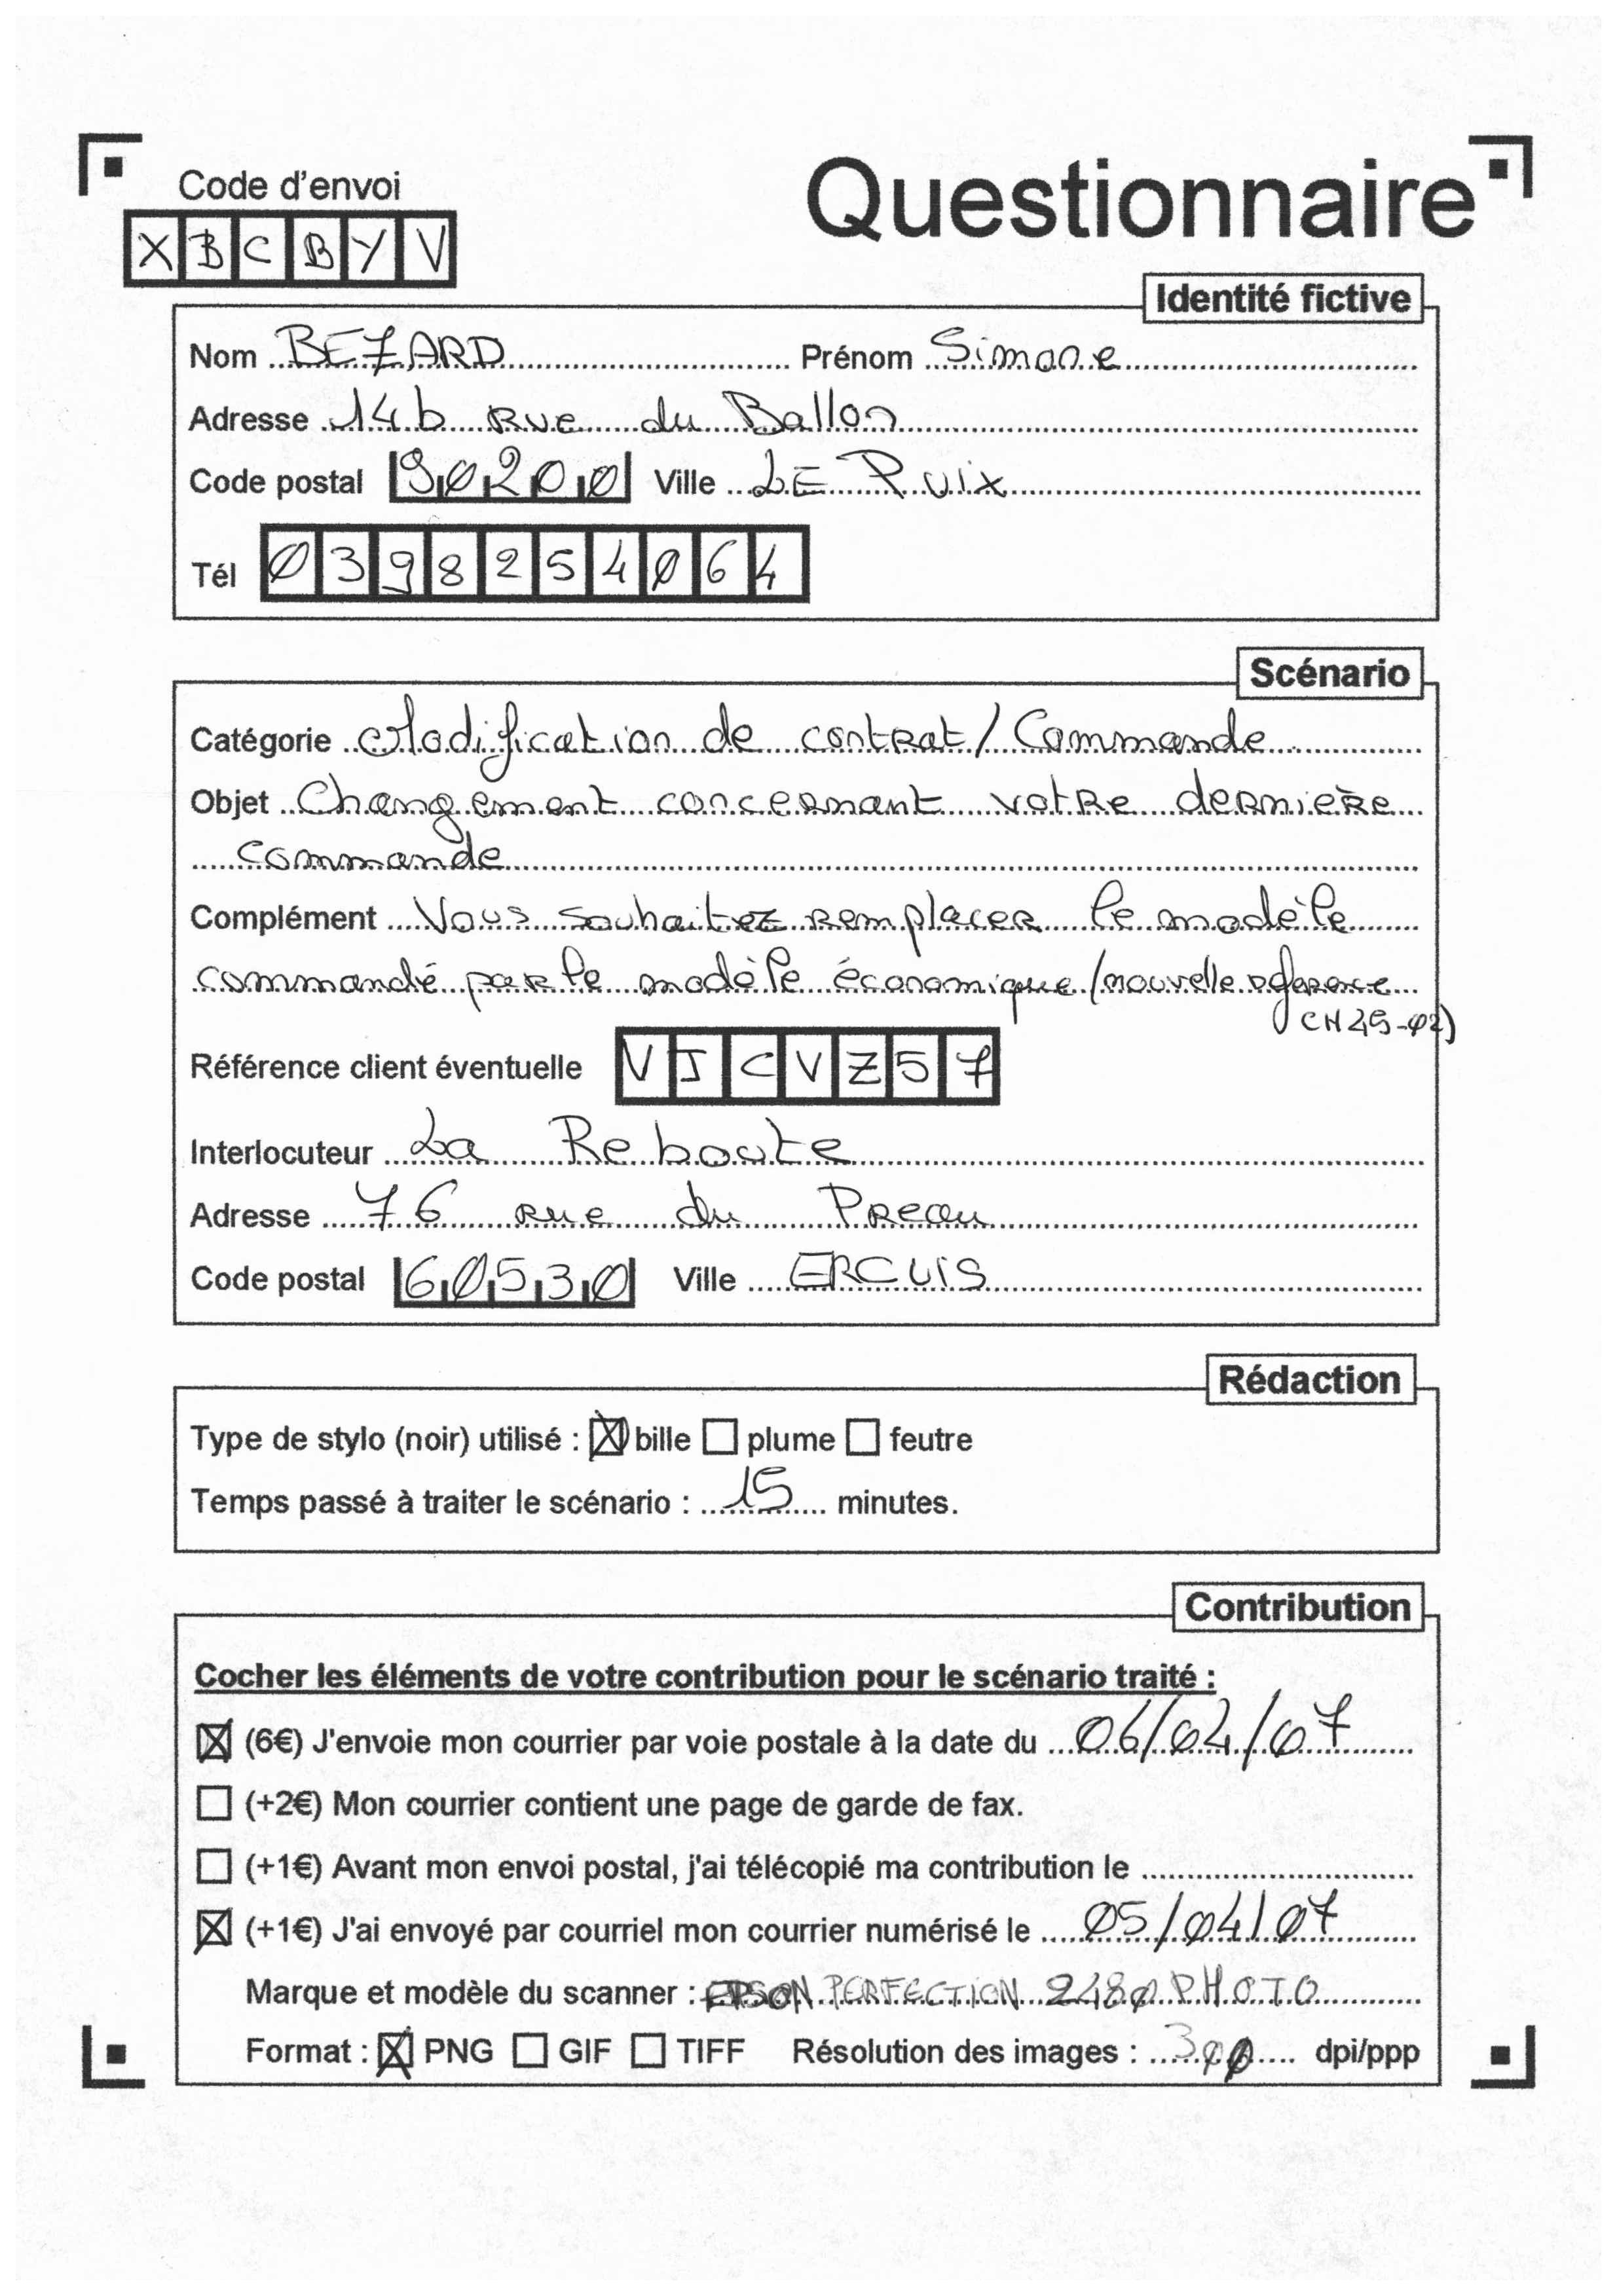 Code d'envoi
Questionnaire
XBCBYV
Identité fictive
Nom BEZARD Prénom Simone
Adresse 14b Rue du Ballon
Code postal 90200 Ville LE PUix
Tél 0398254064
Scénario
Catégorie Modification de contrat/Commande
Objet Changement concernant votre dernière
commande
Complément Vous souhaitez remplacer le modèle
commandé par le modèle économique (nouvelle
Référence client éventuelle VJCVZ57
Interlocuteur La Reboute
Adresse 76 rue du Preau
Code postal 60530 Ville ERCUiS
Rédaction
Type de stylo (noir) utilisé : ☒ bille ☐ plume ☐ feutre
Temps passé à traiter le scénario : 15 minutes.
Contribution
Cocher les éléments de votre contribution pour le scénario traité :
☒ (6€) J'envoie mon courrier par voie postale à la date du 06/04/07
☐ (+2€) Mon courrier contient une page de garde de fax.
☐ (+1€) Avant mon envoi postal, j'ai télécopié ma contribution le
☒ (+1€) J'ai envoyé par courriel mon courrier numérisé le 05/04/07
Marque et modèle du scanner : EPSON PERFECTION 2480 PHOTO
Format : ☒ PNG ☐ GIF ☐ TIFF Résolution des images : 300 dpi/ppp